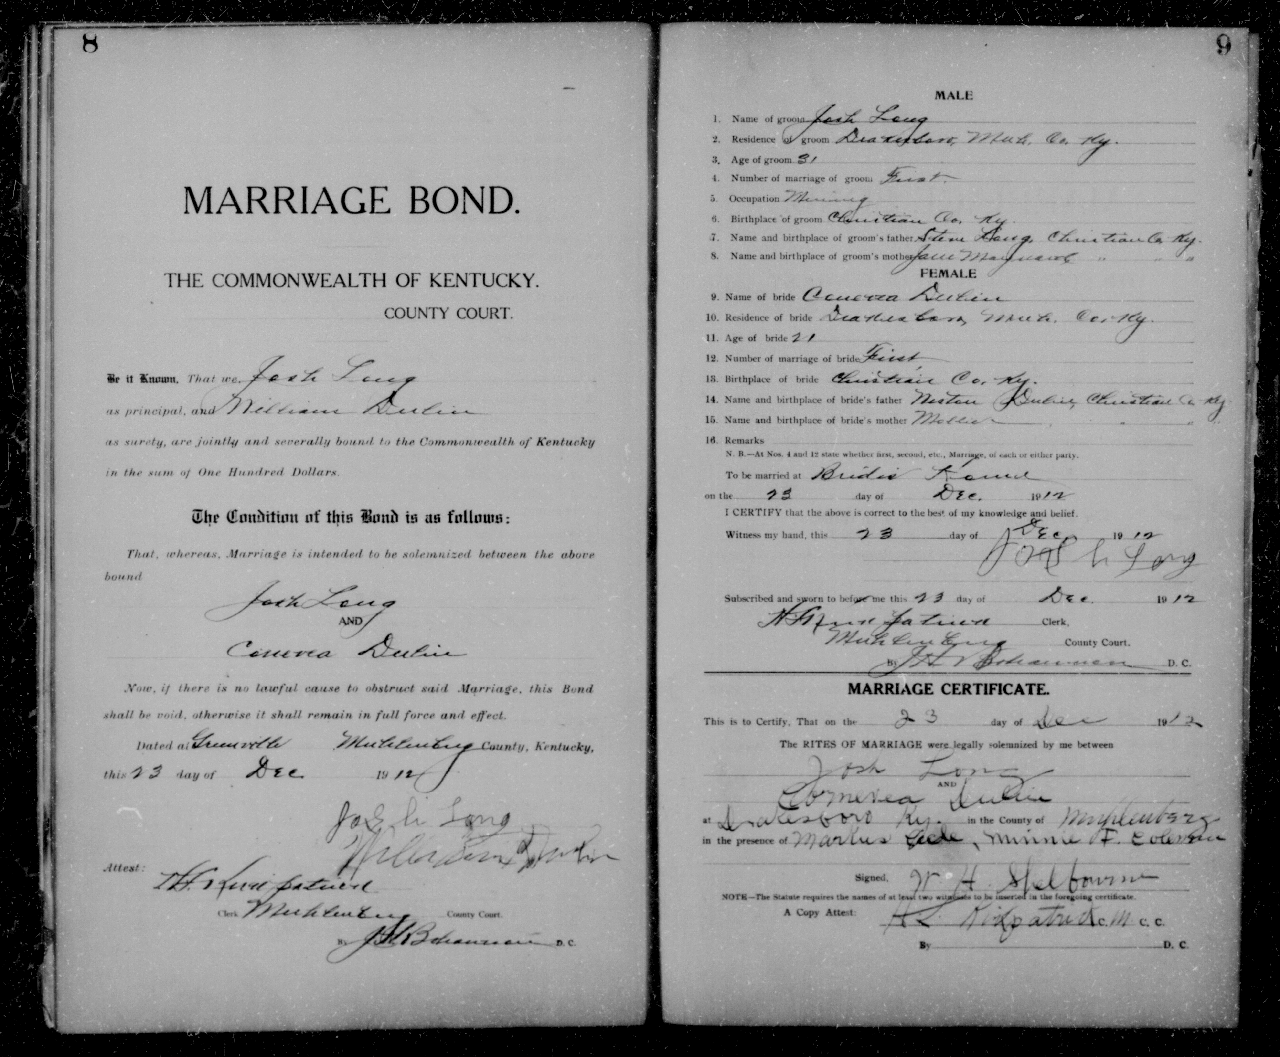 8
MARRIAGE BOND.
THE COMMONWEALTH OF KENTUCKY.
COUNTY COURT.
Be it Known, That we, Josh Long
as principal, and William Dulin
as surety, are jointly and severally bound to the Commonwealth of Kentucky
in the sum of One Hundred Dollars.
The Condition of this Bond is as follows:
That, whereas, Marriage is intended to be solemnized between the above
bound
Josh Long
AND
Dulin
Now, if there is no lawful cause to obstruct said Marriage, this Bond
shall be void, otherwise it shall remain in full force and effect.
Dated at Greenville Muhlenberg County, Kentucky,
this 23 day of Dec 1912
Josh Long
Attest:
Kirkpatrick
Clerk Muhlenberg County Court.
By Bohannon D. C.
9
MALE
1. Name of groom Josh Long
2. Residence of groom Drakesboro, Muh. Co. Ky.
3. Age of groom 31
4. Number of marriage of groom First
5. Occupation Mining
6. Birthplace of groom Christian Co. Ky.
7. Name and birthplace of groom's father Steve Long, Christian Co. Ky.
8. Name and birthplace of groom's mother Jane " " "
FEMALE
9. Name of bride Dulin
10. Residence of bride Drakesboro, Muh. Co. Ky.
11. Age of bride 21
12. Number of marriage of bride First
13. Birthplace of bride Christian Co. Ky.
14. Name and birthplace of bride's father Dulin, Christian Co. Ky.
15. Name and birthplace of bride's mother Mollie " "
16. Remarks
N. B.—At Nos. 4 and 12 state whether first, second, etc., Marriage, of each or either party.
To be married at Brides Home
on the 23 day of Dec. 1912
I CERTIFY that the above is correct to the best of my knowledge and belief.
Witness my hand, this 23 day of Dec. 1912
Josh Long
Subscribed and sworn to before me this 23 day of Dec. 1912
Kirkpatrick Clerk,
Muhlenberg County Court.
By Bohannon D. C.
MARRIAGE CERTIFICATE.
This is to Certify, That on the 23 day of Dec 1912
The RITES OF MARRIAGE were legally solemnized by me between
Josh Long
AND
Dulin
at Drakesboro Ky. in the County of Muhlenberg
in the presence of Markus , Minnie F. Coleman
Signed, W. H. Shelbourne
NOTE—The Statute requires the names of at least two witnesses to be inserted in the foregoing certificate.
A Copy Attest: Kirkpatrick C. M C. C.
By D. C.